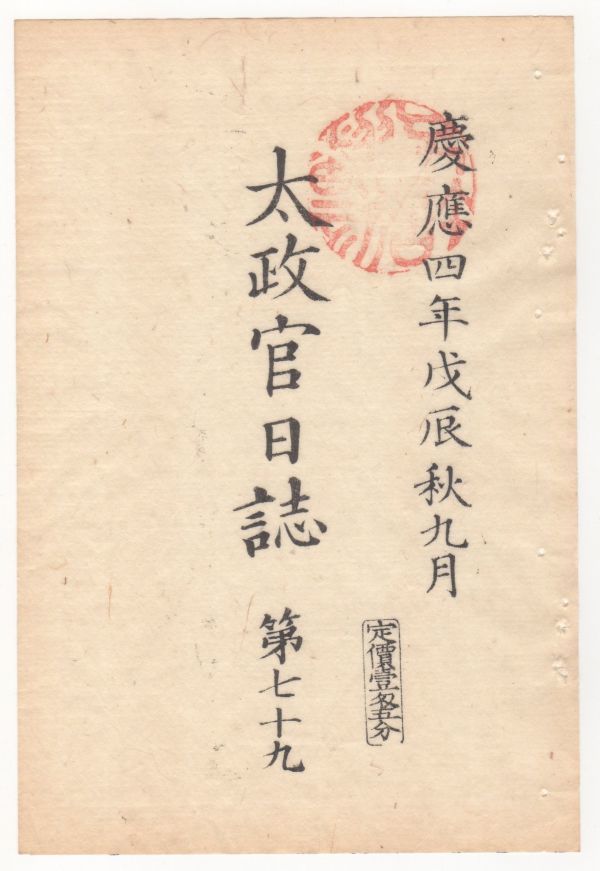 慶應四年戊辰秋九月
定價壹匁五分
太政官日誌 第七十九